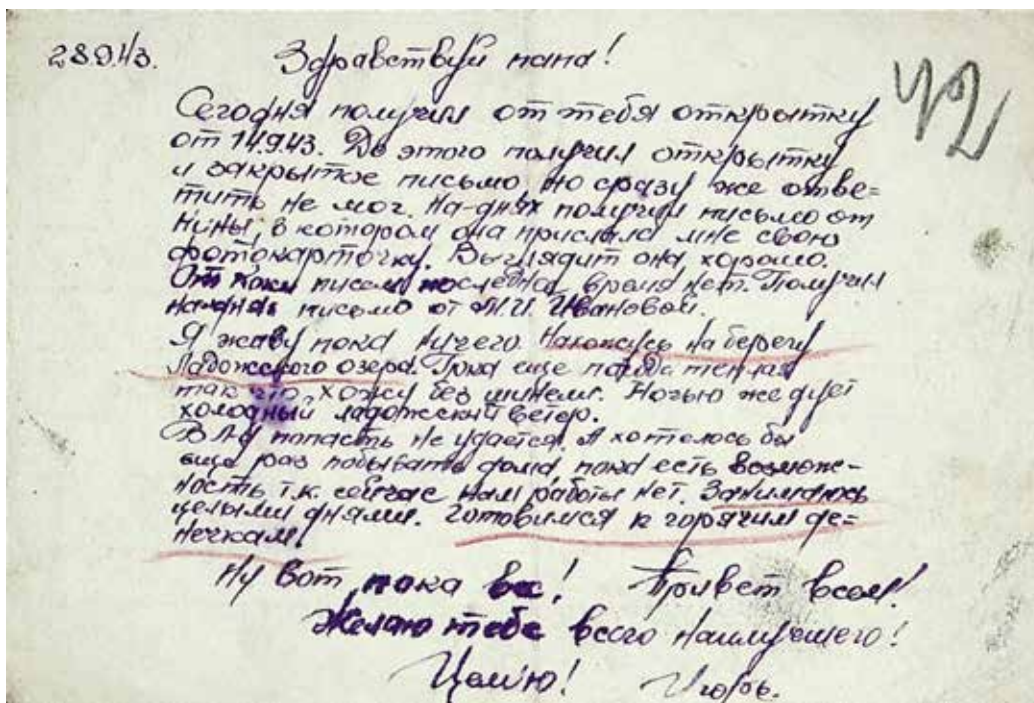 28.9.43. Здравствуй папа!
42
Сегодня получил от тебя открытку
от 14.9.43. До этого получил открытку
и закрытое письмо, но сразу же отве=
тить не мог. На-днях получил письмо от
Нины, в котором она прислала мне свою
фотокарточку. Выглядит она хорошо.
От писем последнее время нет. Получил
на-днях письмо от М.И. Ивановой.
Я живу пока ничего. Нахожусь на берегу
Ладожского озера. Пока еще погода теплая
так что, хожу без шинели. Ночью же дует
холодный ладожский ветер.
В Л-д попасть не удается. А хотелось бы
еще раз побывать дома, пока есть возмож-
ность, т.к. сейчас нам работы нет. Занимаюсь
целыми днями. Готовимся к горячим де=
нечкам!
Ну вот, пока все! Привет всем!
Желаю тебе всего наилучшего!
Целую! Игорь.